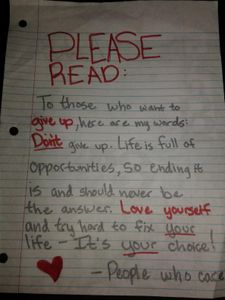 PLEASE
READ:
To those who want to
give up, here are my words:
Don't give up. Life is full of
opportunities, so ending it
is and should never be
the answer. Love yourself
and try hard to fix your
life - It's your choice!
- People who care